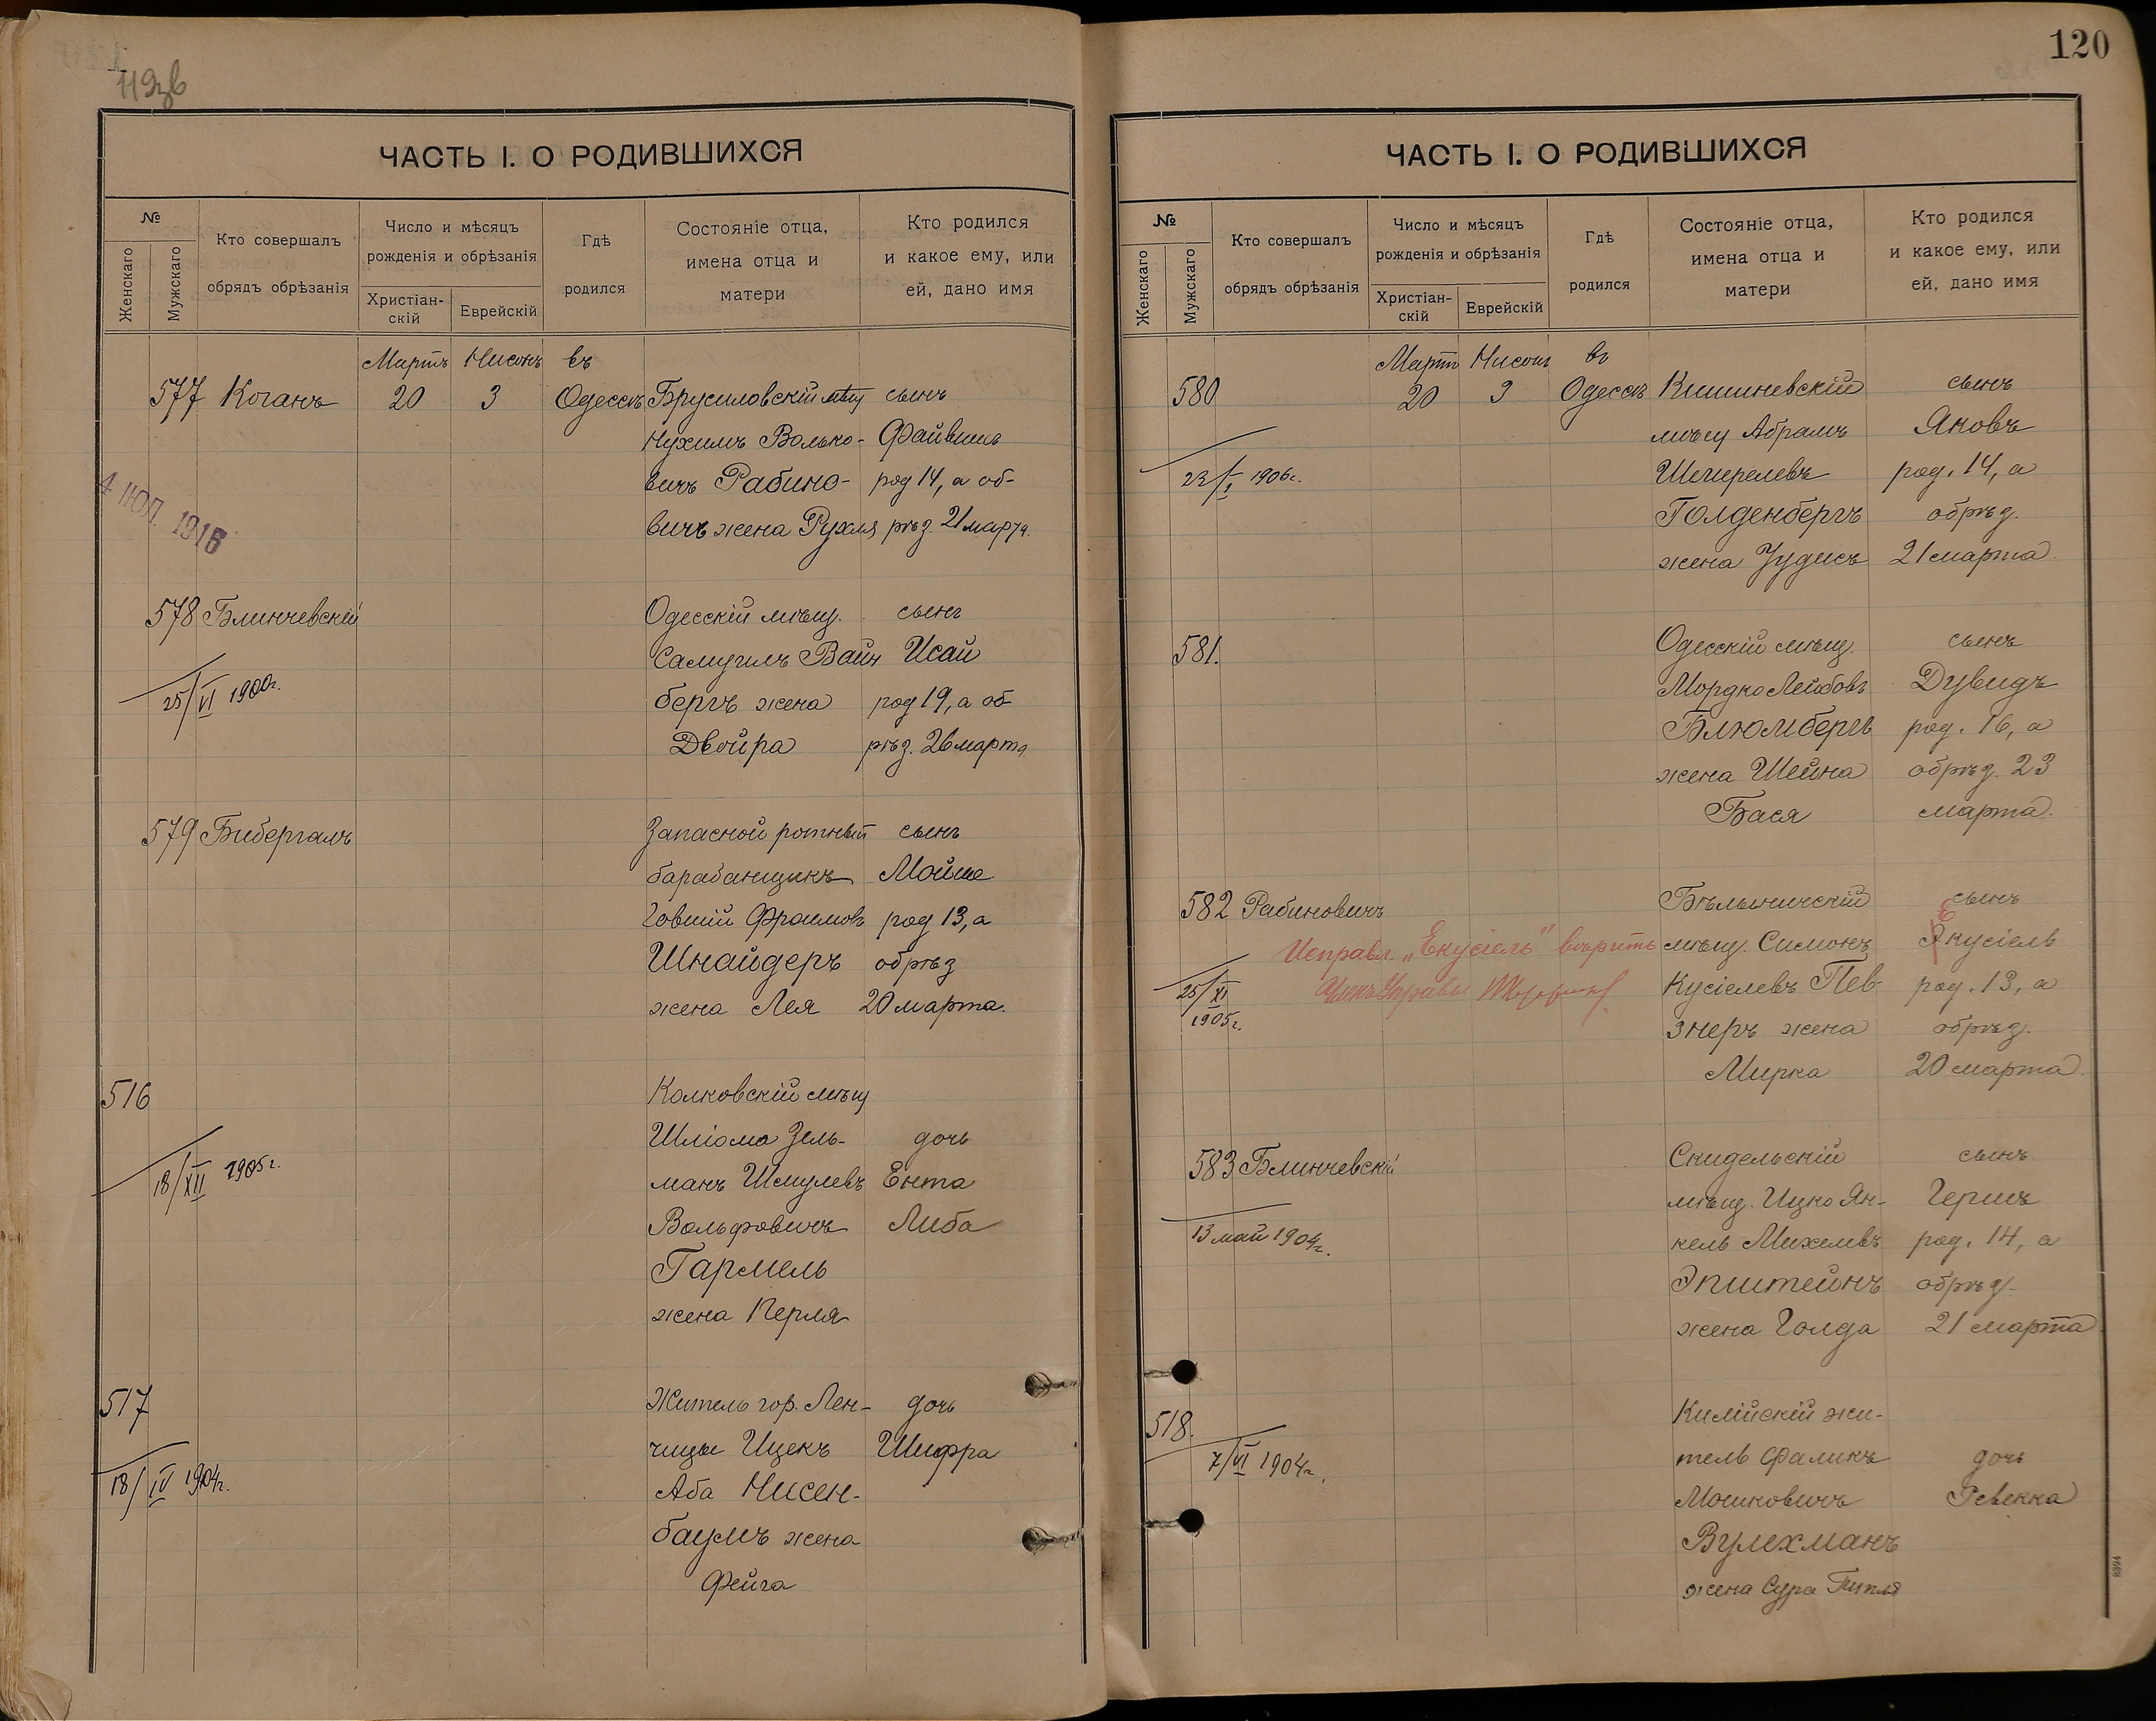 119зв
ЧАСТЬ I. О РОДИВШИХСЯ
№
Женскаго
Мужскаго
Кто совершалъ
обрядъ обрѣзанія
Число и мѣсяцъ
рожденія и обрѣзанія
Христіан-
скій
Еврейскій
Гдѣ
родился
Состояніе отца,
имена отца и
матери
Кто родился
и какое ему, или
ей, дано имя
Мартъ Нисонъ въ
577 Коганъ 20 3 Одессѣ Брусиловскій мѣщ сынъ
Нухимъ Волько- Файвишъ
вичъ Рабино- род 14, а об-
вичъ жена Рухля рѣз. 21 марта.
4 ІЮЛ. 1916
578 Блинчевскій Одесскій мѣщ. сынъ
Самуилъ Вайн Исай
25/VI 1900г. бергъ жена род 19, а об
Двойра рѣз. 26 марта
579 Бибергалъ Запасной ротный сынъ
барабанщикъ Мойше
Говшій Фроимовъ род 13, а
Шнайдеръ обрѣз
жена Лея 20 марта.
516 Колковскій мѣщ
Шліома Зель- дочь
18/XII 1905г. манъ Шмулевъ Ента
Вольфовичъ Либа
Гармель
жена Перля
517 Житель гор. Лен- дочь
чицы Ицекъ Шифра
18/IV 1904г. Аба Нисен-
баумъ жена
Фейга
120
ЧАСТЬ I. О РОДИВШИХСЯ
№
Женскаго
Мужскаго
Кто совершалъ
обрядъ обрѣзанія
Число и мѣсяцъ
рожденія и обрѣзанія
Христіан-
скій
Еврейскій
Гдѣ
родился
Состояніе отца,
имена отца и
матери
Кто родился
и какое ему, или
ей, дано имя
Мартъ Нисонъ въ
580 20 3 Одессѣ Кишиневскій сынъ
мѣщ Абрамъ Яковъ
23/I 1906г. Шмерелевъ род. 14, а
Голденбергъ обрѣз.
жена Іудисъ 21 марта
581. Одесскій мѣщ. сынъ
Мордко Лейбовъ Дувидъ
Блюмбергъ род. 16, а
жена Шейна обрѣз. 23
Бася марта.
582 Рабиновичъ Бѣлыничскій сынъ
Исправл. „Екусіель" вѣрить мѣщ. Симонъ Екусіель
25/XI 1905г. Членъ Управы Кусіелевъ Пев- род. 13, а
знеръ жена обрѣз.
Мирка 20 марта
583 Блинчевскій Скидельскій сынъ
мѣщ. Ицко Ян- Гершъ
13 май 1904г. кель Михелевъ род. 14, а
Эпштейнъ обрѣз.
жена Голда 21 марта
518. Килійскій жи-
7/VI 1904г. тель Фаликъ дочь
Мошковичъ Ревекка
Вулехманъ
жена Сура